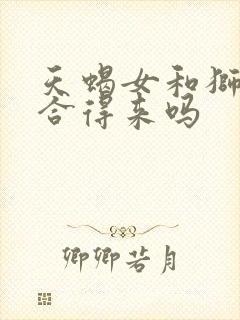 天蝎女和狮
合得来吗
卿卿若月